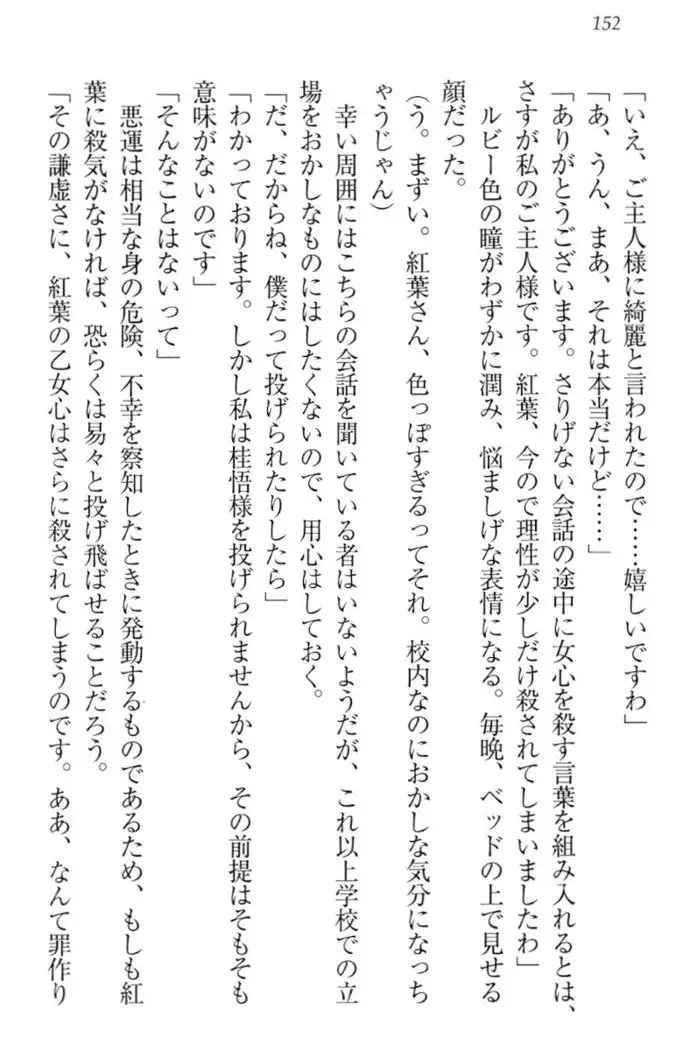 152
「いえ、ご主人様に綺麗と言われたので……嬉しいですわ」
「あ、うん、まあ、それは本当だけど……」
「ありがとうございます。さりげない会話の途中に女心を殺す言葉を組み入れるとは、
さすが私のご主人様です。紅葉、今ので理性が少しだけ殺されてしまいましたわ」
ルビー色の瞳がわずかに潤み、悩ましげな表情になる。毎晩、ベッドの上で見せる
顔だった。
(う。まずい。紅葉さん、色っぽすぎるってそれ。校内なのにおかしな気分になっち
ゃうじゃん)
幸い周囲にはこちらの会話を聞いている者はいないようだが、これ以上学校での立
場をおかしなものにはしたくないので、用心はしておく。
「だ、だからね、僕だって投げられたりしたら」
「わかっております。しかし私は桂悟様を投げられませんから、その前提はそもそも
意味がないのです」
「そんなことはないって」
悪運は相当な身の危険、不幸を察知したときに発動するものであるため、もしも紅
葉に殺気がなければ、恐らくは易々と投げ飛ばせることだろう。
「その謙虚さに、紅葉の乙女心はさらに殺されてしまうのです。ああ、なんて罪作り